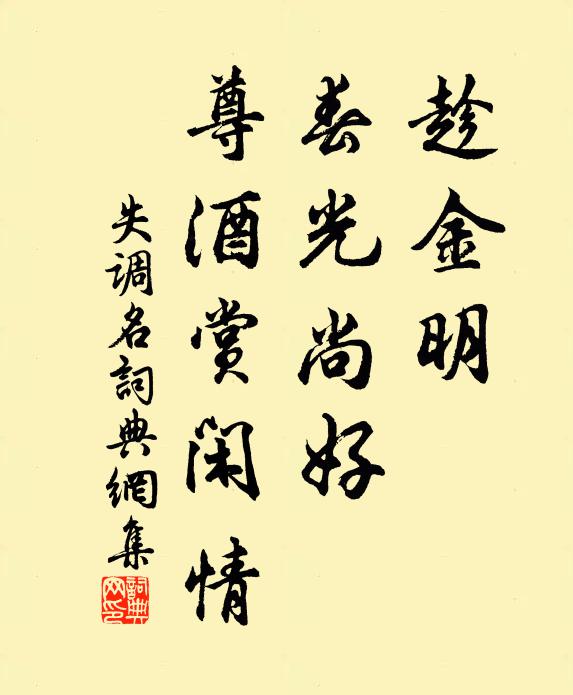 趁金明
春光尚好
尊酒賞閑情
失調名詞典網集
詞典网印